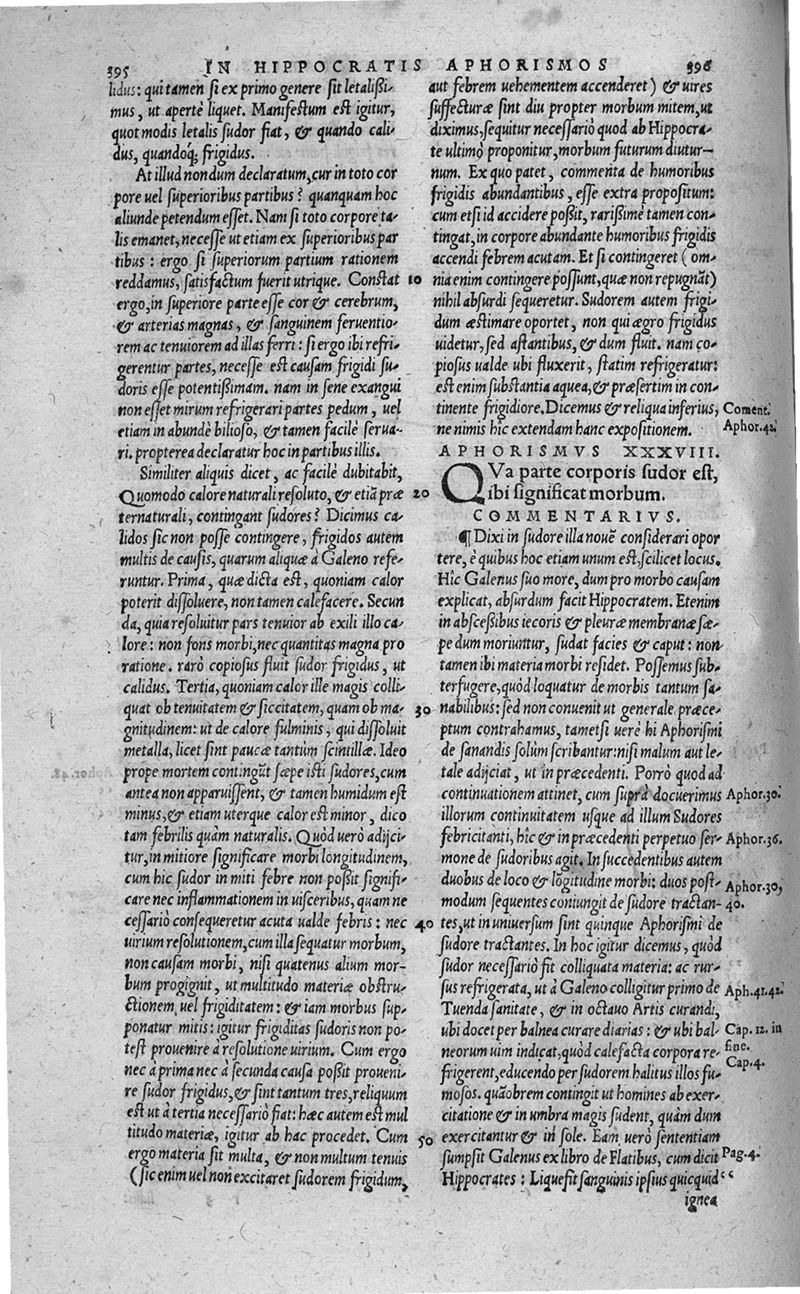 395 IN HIPPOCRATIS APHORISMOS 396
lidus: qui tamen si ex primo genere sit letalißi-
mus, ut apertè liquet. Manifestum est igitur,
quot modis letalis sudor fiat, & quando cali-
dus, quandoq; frigidus.
At illud nondum declaratum, cur in toto cor
pore uel superioribus partibus? quanquam hoc
aliunde petendum esset. Nam si toto corpore ta-
lis emanet, necesse ut etiam ex superioribus par
tibus: ergo si superiorum partium rationem
reddamus, satisfactum fuerit utrique. Constat
ergo, in superiore parte esse cor & cerebrum,
& arterias magnas, & sanguinem feruentio-
rem ac tenuiorem ad illas ferri: si ergo ibi refri-
gerentur partes, necesse est causam frigidi su-
doris esse potentissimam. nam in sene exangui
non esset mirum refrigerari partes pedum, uel
etiam in abundè bilioso, & tamen facilè serua-
ri. propterea declaratur hoc in partibus illis.
Similiter aliquis dicet, ac facilè dubitabit,
Quomodo calore naturali resoluto, & etiã præ
ternaturali, contingant sudores? Dicimus ca-
lidos sic non posse contingere, frigidos autem
multis de causis, quarum aliquæ à Galeno refe-
runtur. Prima, quæ dicta est, quoniam calor
poterit dissoluere, non tamen calefacere. Secun
da, quia resoluitur pars tenuior ab exili illo ca-
lore: non fons morbi, nec quantitas magna pro
ratione. rarò copiosus fluit sudor frigidus, ut
calidus. Tertia, quoniam calor ille magis colli-
quat ob tenuitatem & siccitatem, quam ob ma-
gnitudinem: ut de calore fulminis, qui dissoluit
metalla, licet sint paucæ tantùm scintillæ. Ideo
prope mortem contingũt sæpe isti sudores, cum
antea non apparuissent, & tamen humidum est
minus, & etiam uterque calor est minor, dico
tam febrilis quàm naturalis. Quòd uerò adijci-
tur, in mitiore significare morbi longitudinem,
cum hic sudor in miti febre non poßit signifi-
care nec inflammationem in uisceribus, quam ne
cessariò consequeretur acuta ualde febris: nec
uirium resolutionem, cum illa sequatur morbum,
non causam morbi, nisi quatenus alium mor-
bum progignit, ut multitudo materiæ obstru-
ctionem, uel frigiditatem: & iam morbus sup-
ponatur mitis: igitur frigiditas sudoris non po-
test prouenire à resolutione uirium. Cum ergo
nec à prima nec à secunda causa poßit proueni-
re sudor frigidus, & sint tantum tres, reliquum
est ut à tertia necessariò fiat: hæc autem est mul
titudo materiæ, igitur ab hac procedet. Cum
ergo materia sit multa, & non multum tenuis
(sic enim uel non excitaret sudorem frigidum,
10
20
30
40
50
aut febrem uehementem accenderet) & uires
suffecturæ sint diu propter morbum mitem, ut
diximus, sequitur necessariò quod ab Hippocra-
te ultimò proponitur, morbum futurum diutur-
num. Ex quo patet, commenta de humoribus
frigidis abundantibus, esse extra propositum:
cum etsi id accidere poßit, rarißimè tamen con-
tingat, in corpore abundante humoribus frigidis
accendi febrem acutam. Et si contingeret (om-
nia enim contingere possunt, quæ non repugnãt)
nihil absurdi sequeretur. Sudorem autem frigi-
dum æstimare oportet, non qui ægro frigidus
uidetur, sed astantibus, & dum fluit. nam co-
piosus ualde ubi fluxerit, statim refrigeratur:
est enim substantia aquea, & præsertim in con-
tinente frigidiore. Dicemus & reliqua inferius, Coment.
ne nimis hic extendam hanc expositionem. Aphor.42.
APHORISMVS XXXVIII.
QVa parte corporis sudor est,
ibi significat morbum.
COMMENTARIVS.
¶ Dixi in sudore illa nouẽ considerari opor
tere, è quibus hoc etiam unum est, scilicet locus.
Hîc Galenus suo more, dum pro morbo causam
explicat, absurdum facit Hippocratem. Etenim
in abscessibus iecoris & pleuræ membranæ sæ-
pe dum moriuntur, sudat facies & caput: non
tamen ibi materia morbi residet. Possemus sub-
terfugere, quòd loquatur de morbis tantum sa-
nabilibus: sed non conuenit ut generale præce-
ptum contrahamus, tametsi uerè hi Aphorismi
de sanandis solùm scribantur: nisi malum aut le-
tale adijciat, ut in præcedenti. Porrò quod ad
continuationem attinet, cum suprà docuerimus Aphor.30.
illorum continuitatem usque ad illum Sudores
febricitanti, hîc & in præcedenti perpetuo ser- Aphor.36.
mone de sudoribus agit. In succedentibus autem
duobus de loco & lõgitudine morbi: duos post- Aphor.30,
modum sequentes coniungit de sudore tractan- 40.
tes, ut in uniuersum sint quinque Aphorismi de
sudore tractantes. In hoc igitur dicemus, quòd
sudor necessariò fit colliquata materia: ac rur-
sus refrigerata, ut à Galeno colligitur primo de Aph.41.42.
Tuenda sanitate, & in octauo Artis curandi,
ubi docet per balnea curare diarias: & ubi bal- Cap. 12. in
neorum uim indicat, quòd calefacta corpora re- fine.
frigerent, educendo per sudorem halitus illos fu- Cap.4.
mosos. quãobrem contingit ut homines ab exer-
citatione & in umbra magis sudent, quàm dum
exercitantur & in sole. Eam uerò sententiam
sumpsit Galenus ex libro de Flatibus, cum dicit Pag.4.
Hippocrates: Liquefit sanguinis ipsius quicquid “
ignea